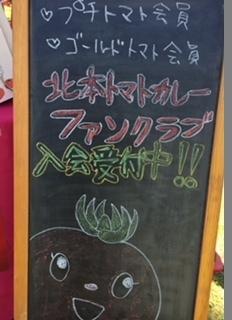 ♡プチトマト会員
♡ゴールドトマト会員
北本トマトカレー
ファンクラブ
入会受付中!!